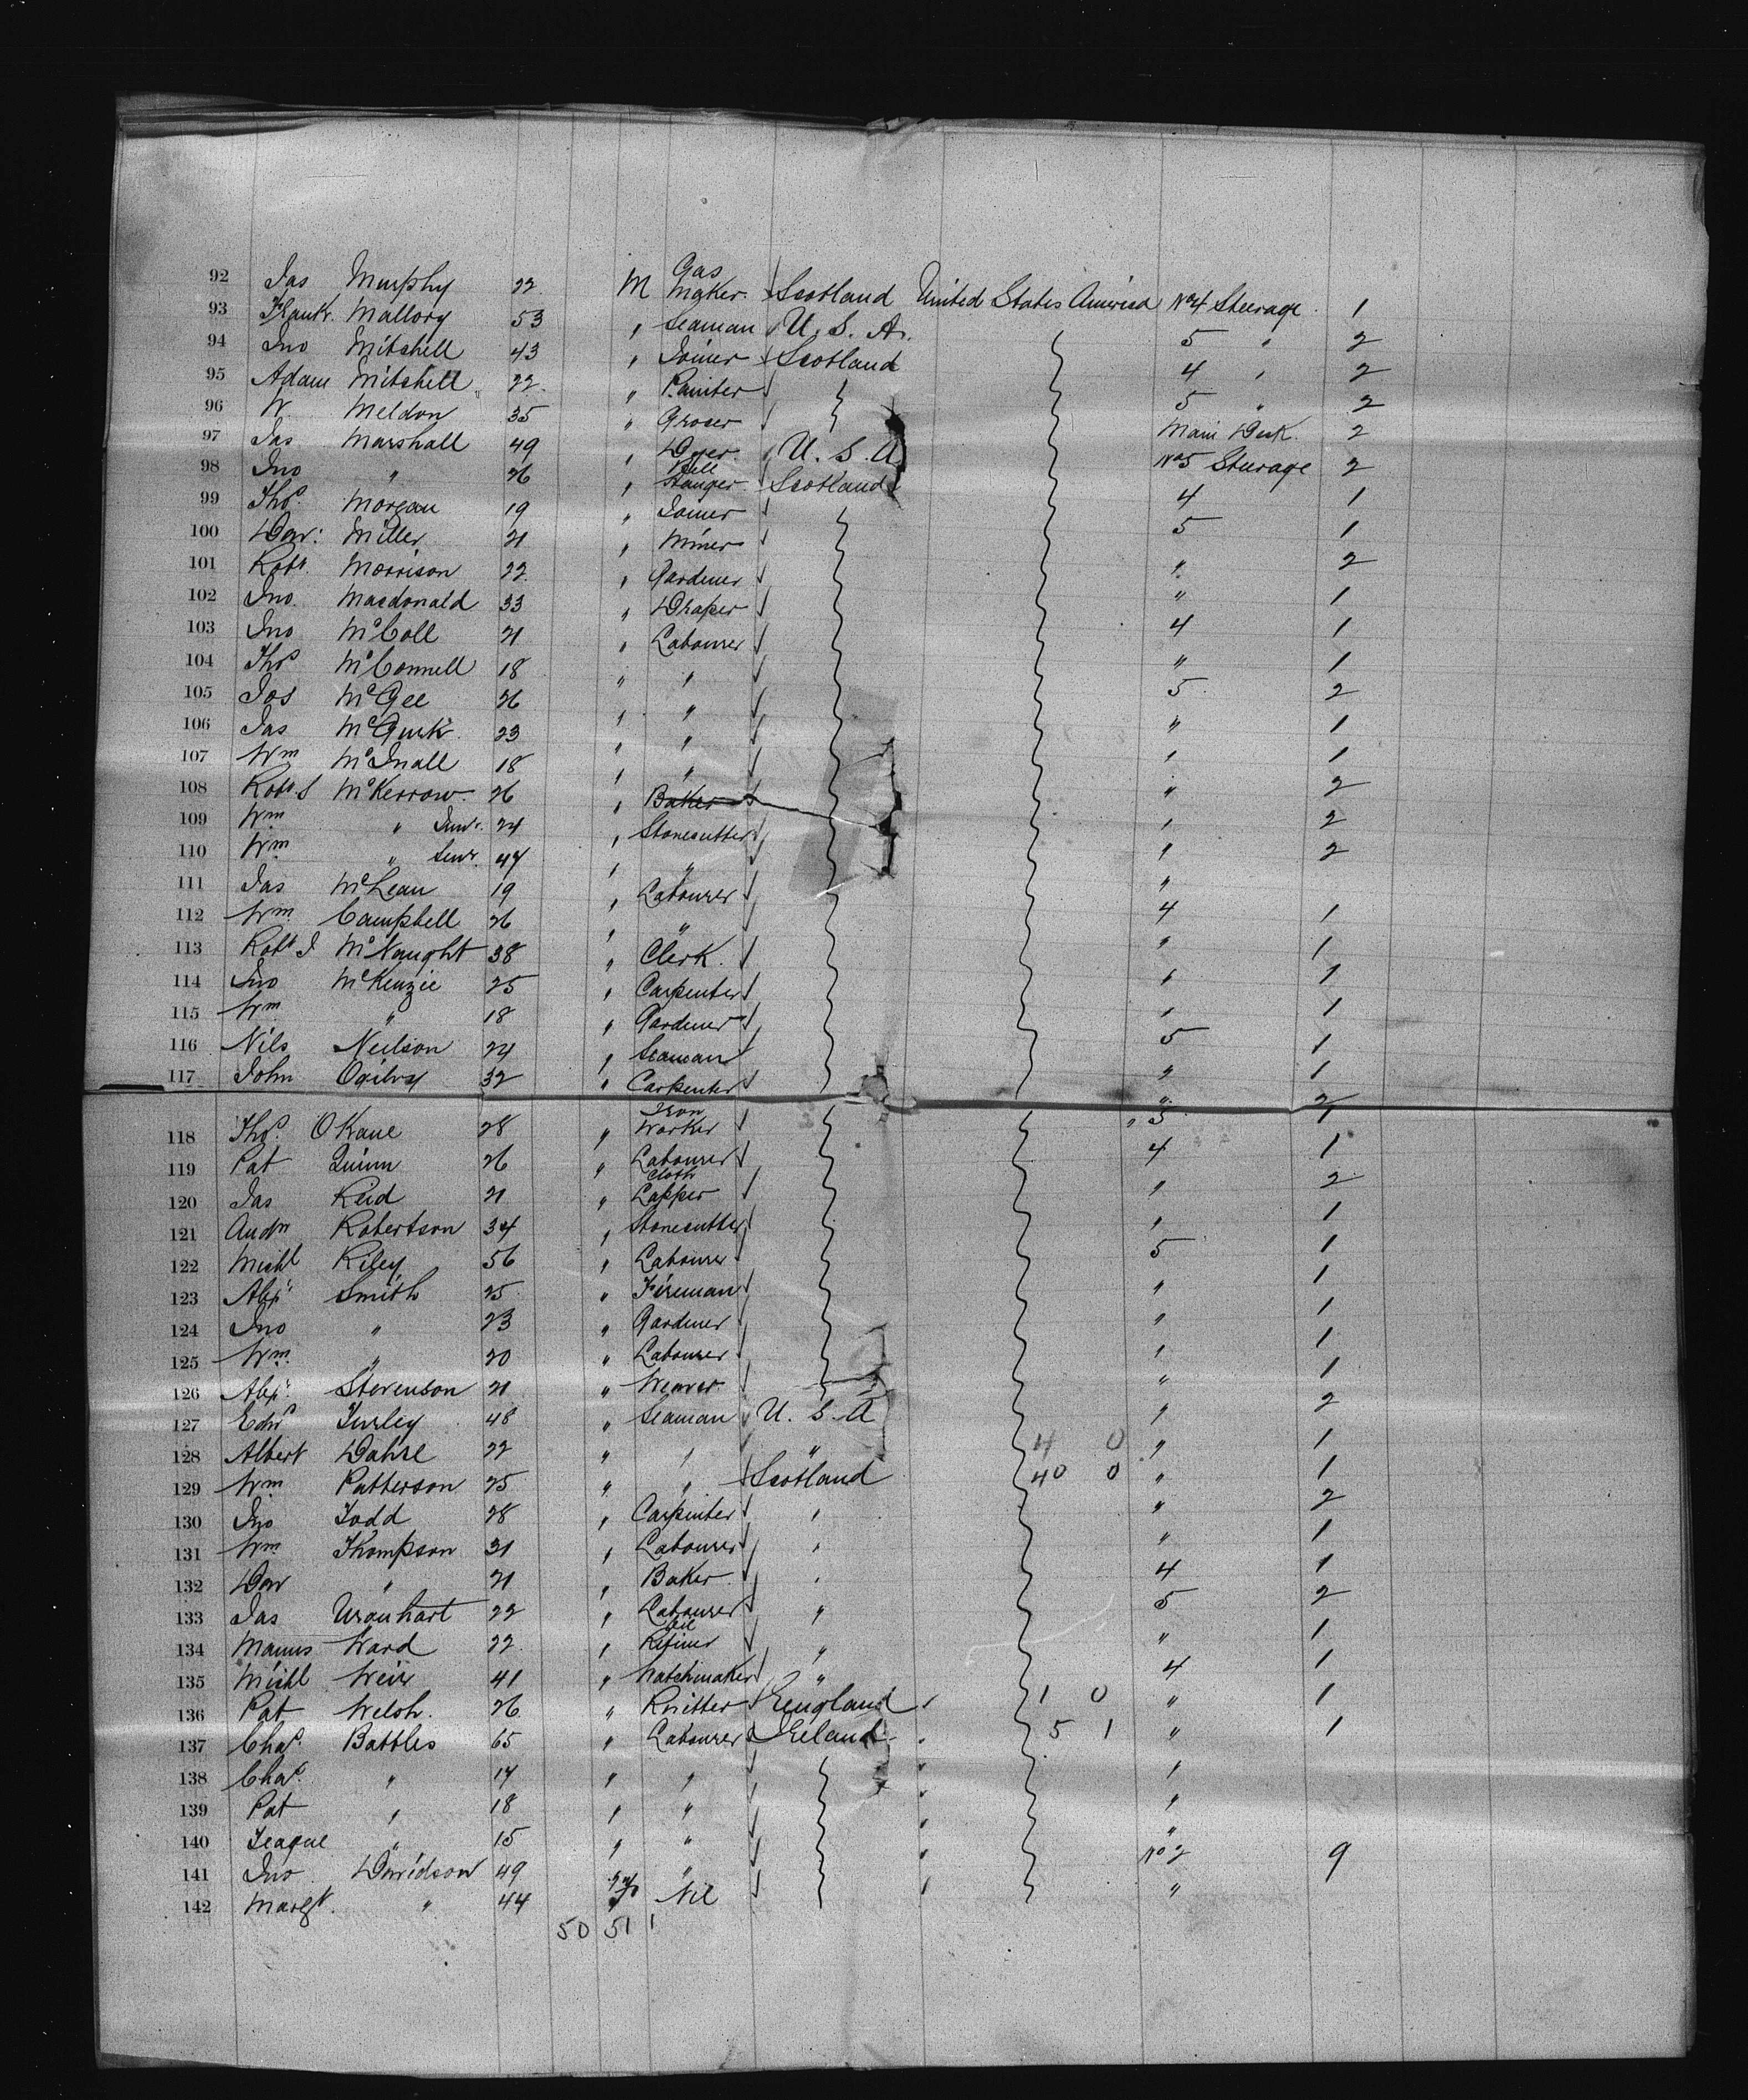 92 Jas Murphy 22 M Gas Maker Scotland United States America No 4 Steerage 1
93 Frank. Mallory 53 " Seaman U. S. A. 5 " 2
94 Jno Mitchell 43 " Joiner Scotland 4 " 2
95 Adam Mitchell 22 " Painter 5 " 2
96 W. Meldon 35 " Grocer Main Deck 2
97 Jas Marshall 49 " Dyer U. S. A No 5 Steerage 2
98 Jno " 26 " Bell Hanger Scotland 4 1
99 Thos. Morgan 19 " Joiner 5 1
100 Dav: Miller 21 " Miner " 2
101 Robt. Morrison 22 " Gardener " 1
102 Jno. Macdonald 33 " Draper 4 1
103 Jno McColl 21 " Labourer " 1
104 Thos McConnell 18 " " 5 2
105 Jos McGee 26 " " " 1
106 Jas McGurk 23 " " " 1
107 Wm McInall 18 " " " 2
108 Robt. S McKerrow 26 " Baker " 2
109 Wm " Junr. 24 " Stonecutter " 2
110 Wm " Senr. 47 " " "
111 Jas McLean 19 " Labourer 4 1
112 Wm Campbell 26 " " " 1
113 Robt J McNaught 38 " Clerk " 1
114 Jno McKenzie 25 " Carpenter " 1
115 Wm " 18 " Gardener 5 1
116 Nils Neilson 24 " Seaman " 1
117 John Ogilvy 32 " Carpenter " 2
118 Thos. O'Kane 28 " Iron Worker " 5 1
119 Pat Quinn 26 " Labourer 4 1
120 Jas Reid 21 " Cloth Lapper " 2
121 Andw Robertson 34 " Stonecutter " 1
122 Michl Riley 56 " Labourer 5 1
123 Alexr Smith 25 " Fireman " 1
124 Jno " 23 " Gardener " 1
125 Wm " 20 " Labourer " 1
126 Alexr. Stevenson 21 " Weaver " 1
127 Edwd Turley 48 " Seaman U. S. A " 2
128 Albert 22 " " " 4 0 " 1
129 Wm Patterson 25 " " Scotland 40 0 " 1
130 Jno Todd 28 " Carpenter " " 2
131 Wm Thompson 31 " Labourer " " 1
132 Dav " 21 " Baker " 4 1
133 Jas Urquhart 22 " Labourer " 5 2
134 Manus Ward 22 " Oil Refiner " " 1
135 Michl Weir 41 " Watchmaker " 4 1
136 Pat Welsh. 26 " Knitter England " 1 0 " 1
137 Chas. Battles 65 " Labourer Ireland " 5 1 " 1
138 Chas. " 17 " " " "
139 Pat " 18 " " " "
140 Teague " 15 " " " "
141 Jno Davidson 49 " " " No 2 9
142 Margt. " 44 " Nil "
50 51 1